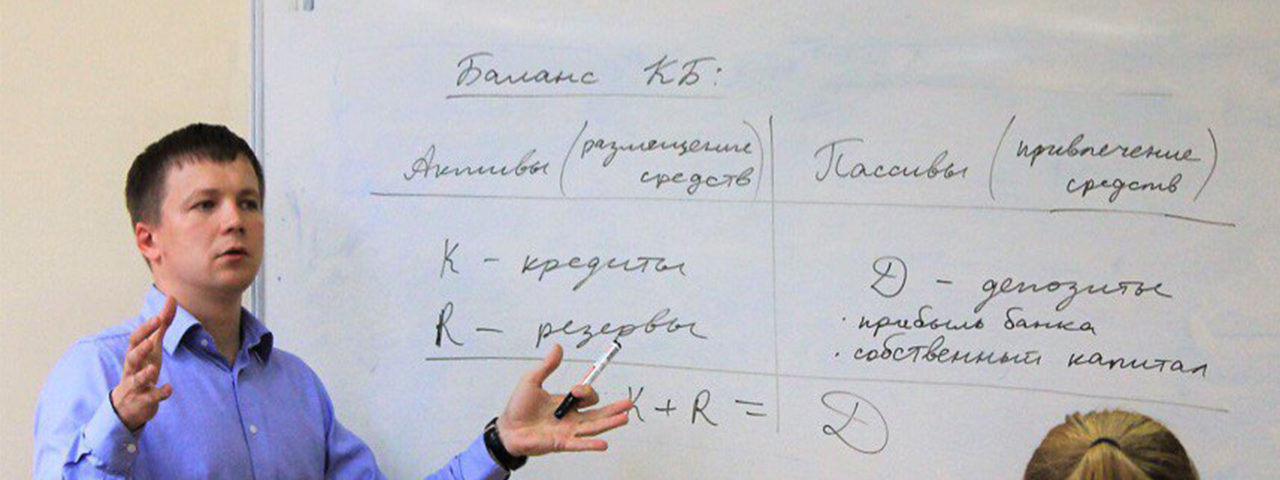 Баланс КБ:
Активы (размещение средств)
Пассивы (привлечение средств)
K - кредиты
R - резервы
D - депозиты
· прибыль банка
· собственный капитал
K + R = D